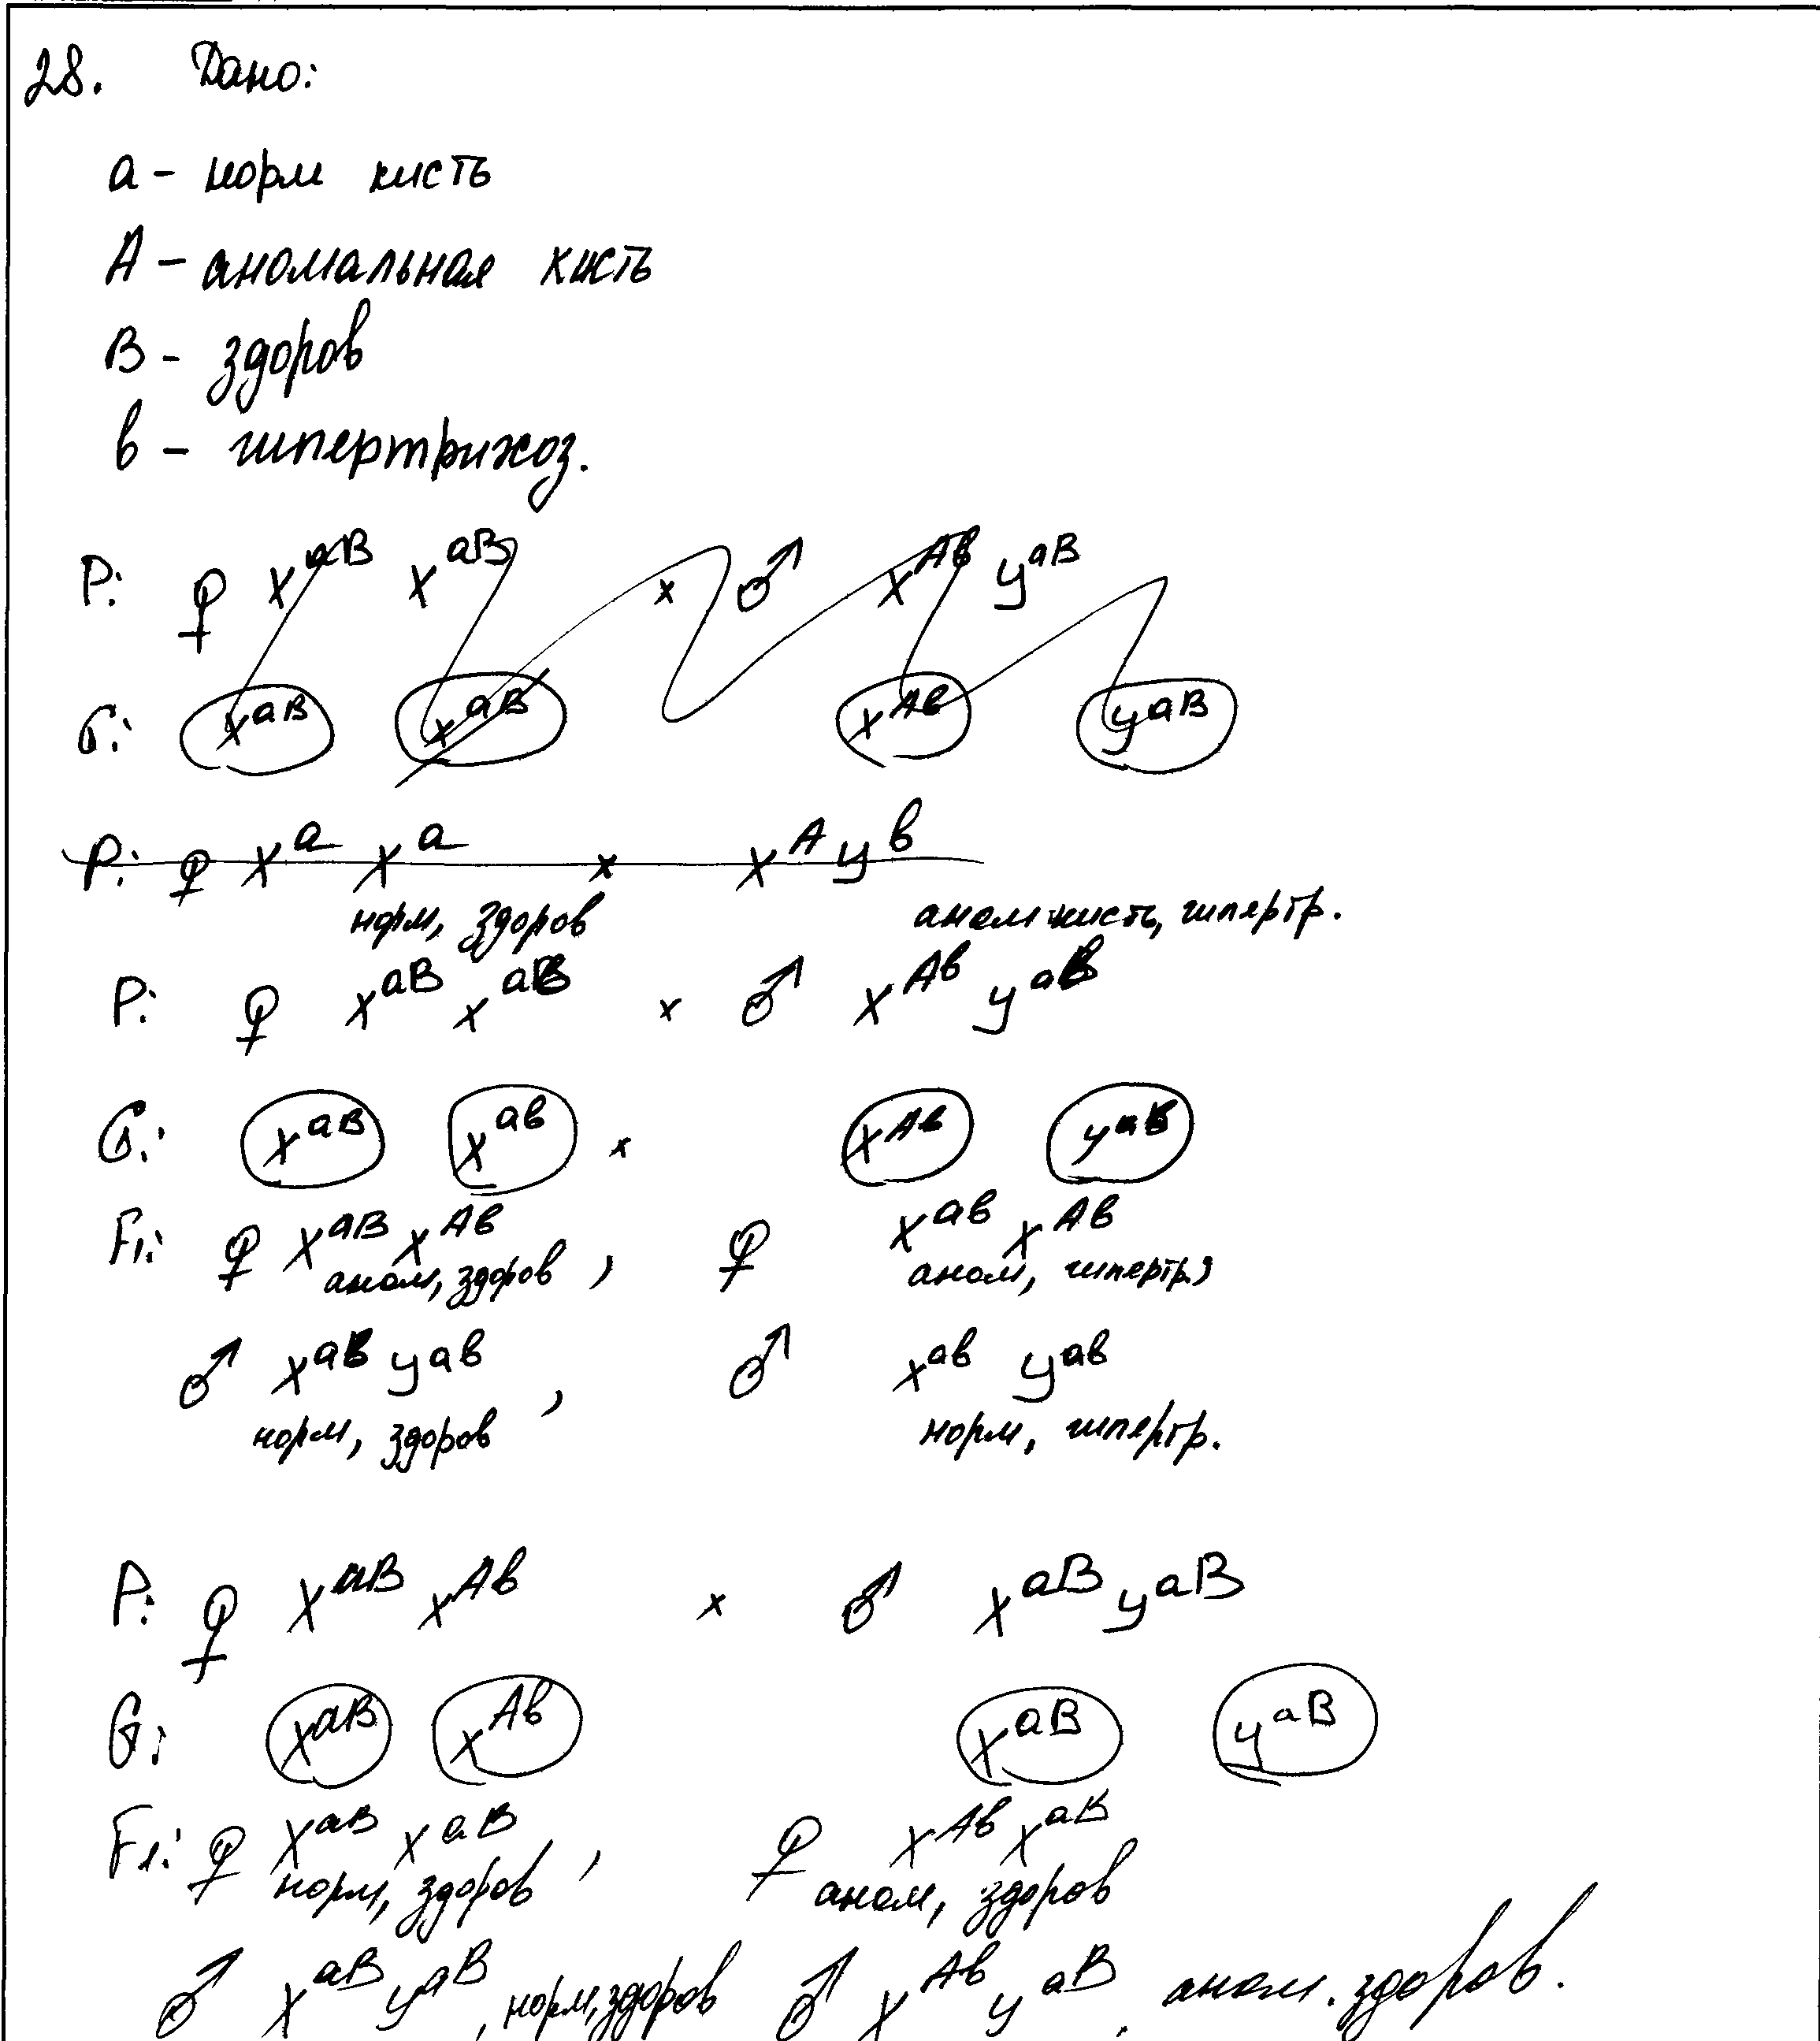 28. Дано:
а - норм кисть
А - аномальная кисть
В - здоров
в - гипертрихоз.
Р: ♀ X^aB X^aB x ♂ X^Aв У^aB
G: X^aB X^aB X^Aв У^aB
Р: ♀ X^a X^a x X^A У^в
норм, здоров аном кисть, гипертр.
Р: ♀ X^aB X^aв x ♂ X^Aв У^aв
G: X^aB X^aв x X^Aв У^aв
F1: ♀ X^aB X^Aв , ♀ X^aв X^Aв
аном, здоров аном, гипертр,
♂ X^aB У^aв , ♂ X^aв У^aв
норм, здоров норм, гипертр.
Р: ♀ X^aB X^Aв x ♂ X^aB У^aB
G: X^aB X^Aв X^aB У^aB
F1: ♀ X^aB X^aB , ♀ X^Aв X^aB
норм, здоров аном, здоров
♂ X^aB У^aB , норм, здоров ♂ X^Aв У^aB , аном. здоров.